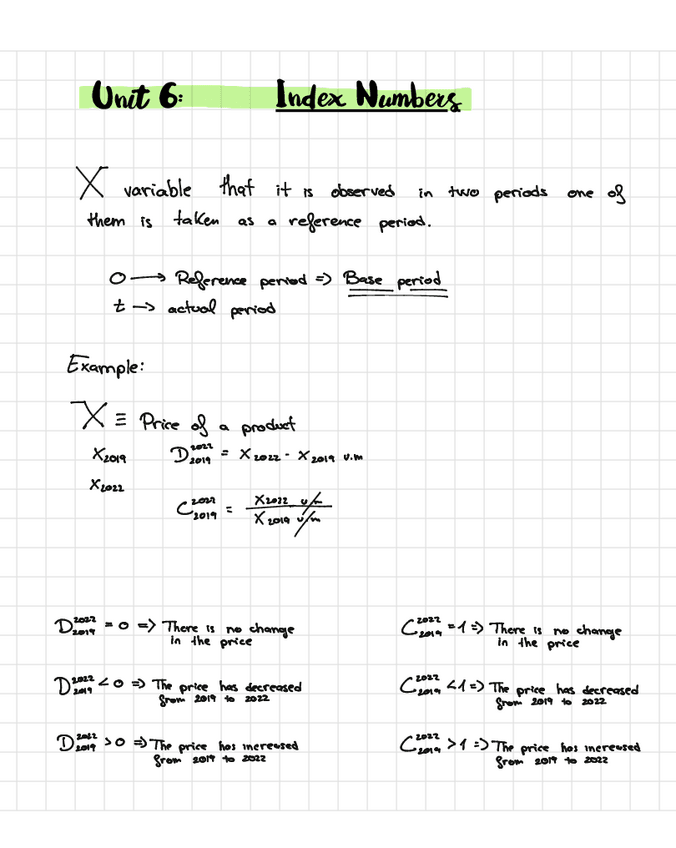 Unit 6: Index Numbers
X variable that it is observed in two periods one of
them is taken as a reference period.
0 → Reference period => Base period
t → actual period
Example:
X ≡ Price of a product
X2019 D^2022_2019 = X2022 - X2019 u.m
X2022
C^2022_2019 = X2022 u/m / X2019 u/m
D^2022_2019 = 0 => There is no change
in the price
C^2022_2019 = 1 => There is no change
in the price
D^2022_2019 < 0 => The price has decreased
from 2019 to 2022
C^2022_2019 < 1 => The price has decreased
from 2019 to 2022
D^2022_2019 > 0 => The price has increased
from 2019 to 2022
C^2022_2019 > 1 => The price has increased
from 2019 to 2022